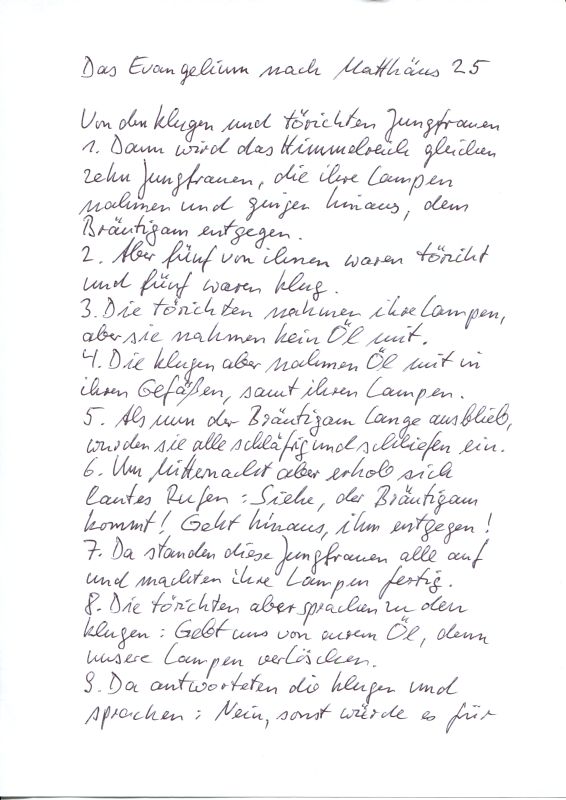 Das Evangelium nach Matthäus 25
Von den klugen und törichten Jungfrauen
1. Dann wird das Himmelreich gleichen
zehn Jungfrauen, die ihre Lampen
nahmen und gingen hinaus, dem
Bräutigam entgegen.
2. Aber fünf von ihnen waren töricht
und fünf waren klug.
3. Die törichten nahmen ihre Lampen,
aber sie nahmen kein Öl mit.
4. Die klugen aber nahmen Öl mit in
ihren Gefäßen, samt ihren Lampen.
5. Als nun der Bräutigam lange ausblieb,
wurden sie alle schläfrig und schliefen ein.
6. Um Mitternacht aber erhob sich
lautes Rufen: Siehe, der Bräutigam
kommt! Geht hinaus, ihm entgegen!
7. Da standen diese Jungfrauen alle auf
und machten ihre Lampen fertig.
8. Die törichten aber sprachen zu den
klugen: Gebt uns von eurem Öl, denn
unsere Lampen verlöschen.
9. Da antworteten die klugen und
sprachen: Nein, sonst würde es für